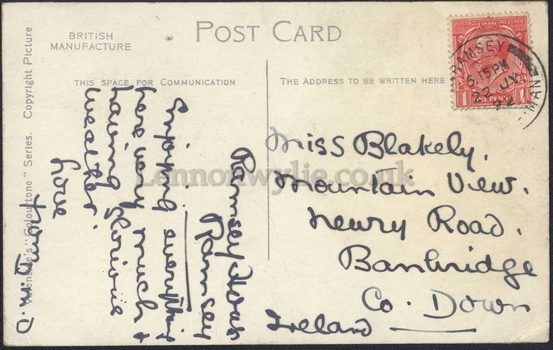 POST CARD
BRITISH
MANUFACTURE
THIS SPACE FOR COMMUNICATION
THE ADDRESS TO BE WRITTEN HERE
Valentine's "Colourtone" Series. Copyright Picture
RAMSEY
5.15PM
22 JY
22
Ramsey
Enjoying everything
here very much &
having glorious
weather.
Love
from
Miss Blakely.
Mountain View.
Newry Road.
Banbridge
Co. Down
Ireland
Lennonwylie.co.uk